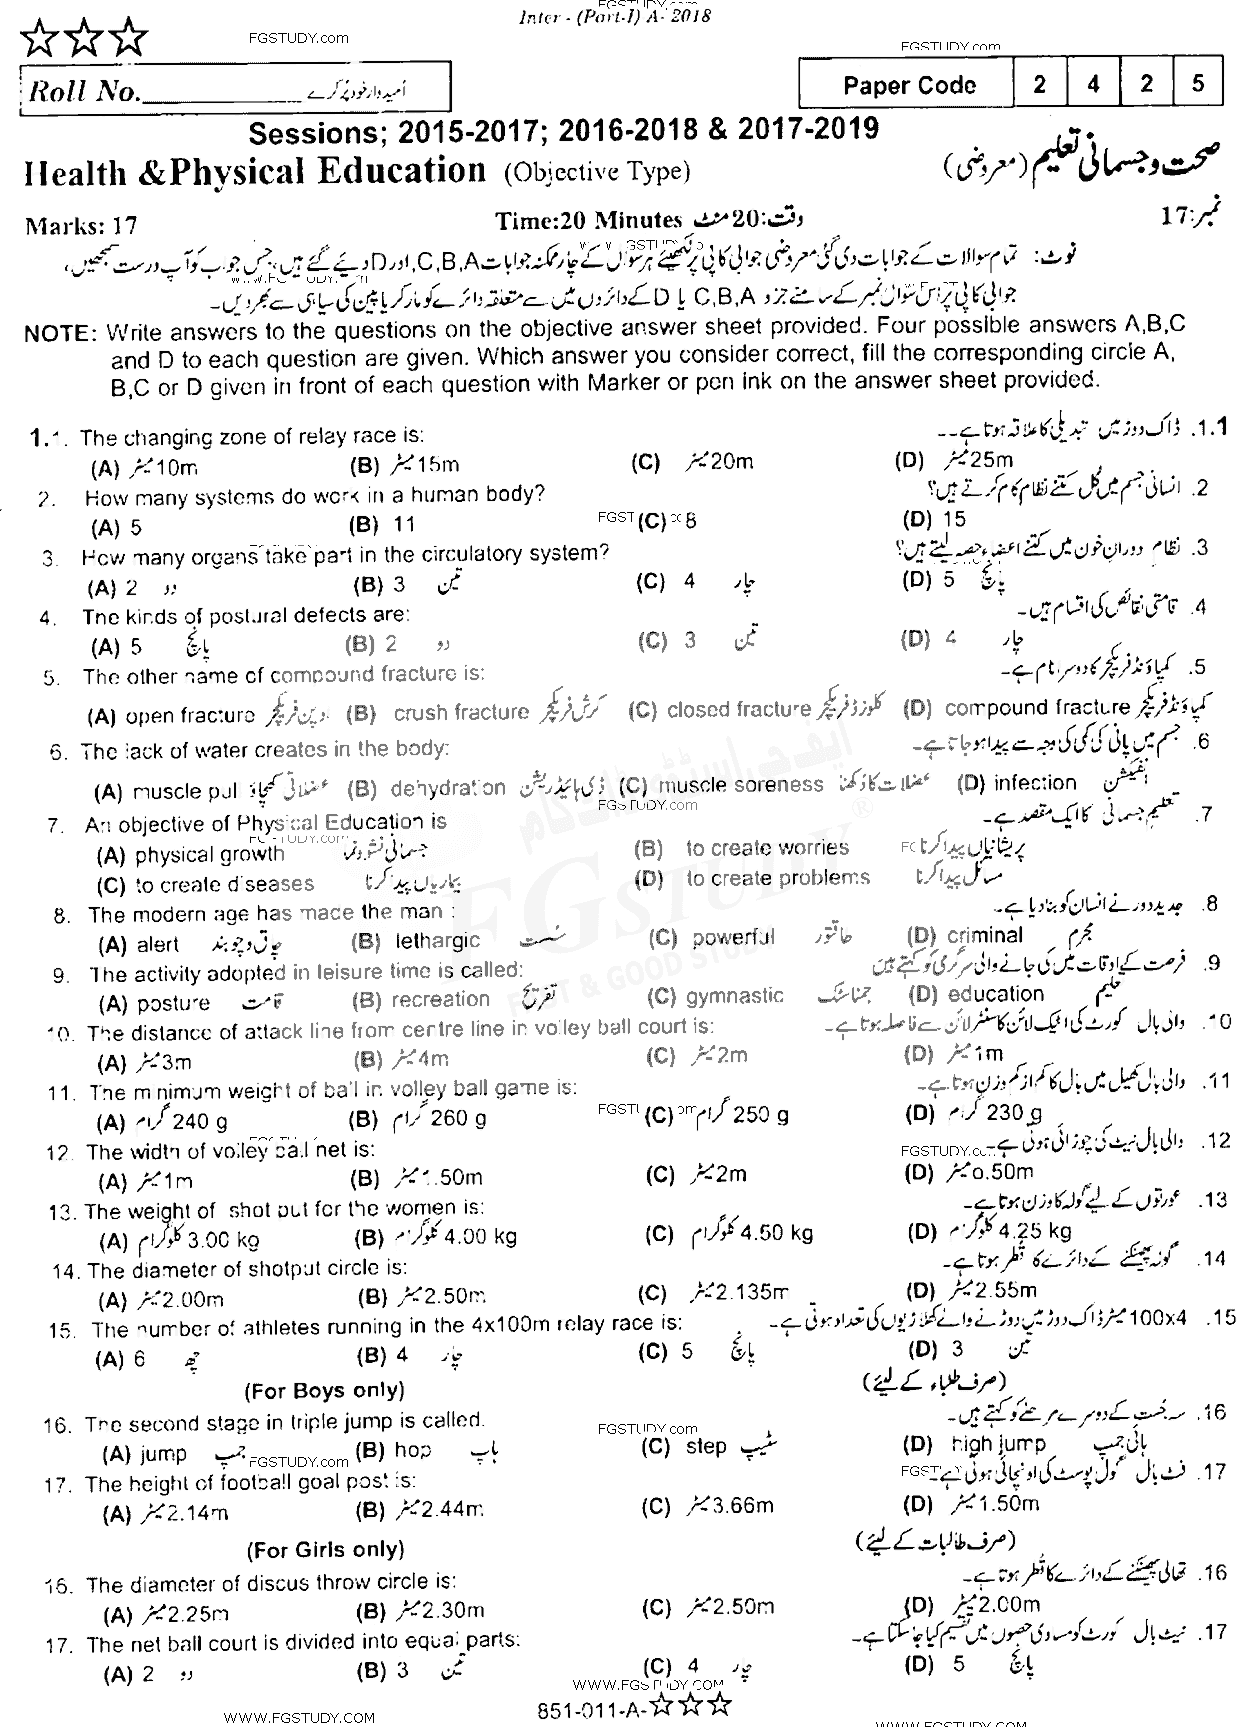 Inter - (Part-I) A- 2018
FGSTUDY.com
FGSTUDY.com
Roll No.____________ اُمیدوار خود پُر کرے
Paper Code 2 4 2 5
Sessions; 2015-2017; 2016-2018 & 2017-2019
Health &Physical Education (Objective Type) صحت و جسمانی تعلیم (معروضی)
Marks: 17 Time:20 Minutes وقت:20 منٹ نمبر:17
نوٹ: تمام سوالات کے جوابات دی گئی معروضی جوابی کاپی پر لکھیئے ہر سوال کے چار ممکنہ جوابات C,B,A اور D دیئے گئے ہیں، جس جواب کو آپ درست سمجھیں،
جوابی کاپی پر اُس سوال نمبر کے سامنے جزو C,B,A یا D کے دائروں میں سے متعلقہ دائرے کو مارکر یا پین کی سیاہی سے بھر دیں۔
NOTE: Write answers to the questions on the objective answer sheet provided. Four possible answers A,B,C
and D to each question are given. Which answer you consider correct, fill the corresponding circle A,
B,C or D given in front of each question with Marker or pen ink on the answer sheet provided.
1.1. The changing zone of relay race is: 1.1. ڈاک دوڑ میں تبدیلی کا علاقہ ہوتا ہے۔۔
(A) میٹر10m (B) میٹر15m (C) میٹر20m (D) میٹر25m
2. How many systems do work in a human body? 2. انسانی جسم میں کُل کتنے نظام کام کرتے ہیں؟
(A) 5 (B) 11 (C) 8 (D) 15
3. How many organs take part in the circulatory system? 3. نظام دورانِ خون میں کتنے اعضاء حصہ لیتے ہیں؟
(A) 2 دو (B) 3 تین (C) 4 چار (D) 5 پانچ
4. The kinds of postural defects are: 4. قامتی نقائص کی اقسام ہیں۔
(A) 5 پانچ (B) 2 دو (C) 3 تین (D) 4 چار
5. The other name of compound fracture is: 5. کمپاؤنڈ فریکچر کا دوسرا نام ہے۔
(A) open fracture اوپن فریکچر (B) crush fracture کرش فریکچر (C) closed fracture کلوزڈ فریکچر (D) compound fracture کمپاؤنڈ فریکچر
6. The lack of water creates in the body: 6. جسم میں پانی کی کمی کی وجہ سے پیدا ہو جاتا ہے۔
(A) muscle pul عضلاتی کھچاؤ (B) dehydration ڈی ہائیڈریشن (C) muscle soreness عضلات کا دُکھنا (D) infection انفیکشن
FGSTUDY.com
7. An objective of Physical Education is 7. تعلیم جسمانی کا ایک مقصد ہے۔
(A) physical growth جسمانی نشوونما (B) to create worries پریشانیاں پیدا کرنا
(C) to create diseases بیماریاں پیدا کرنا (D) to create problems مسائل پیدا کرنا
8. The modern age has made the man : 8. جدید دور نے انسان کو بنا دیا ہے۔
(A) alert چاق و چوبند (B) lethargic سُست (C) powerful طاقتور (D) criminal مجرم
9. The activity adopted in leisure time is called: 9. فرصت کے اوقات میں کی جانے والی سرگرمی کو کہتے ہیں
(A) posture قامت (B) recreation تفریح (C) gymnastic جمناسٹک (D) education تعلیم
10. The distance of attack line from centre line in volley ball court is: 10. والی بال کورٹ کی اٹیک لائن کا سنٹر لائن سے فاصلہ ہوتا ہے۔
(A) میٹر3m (B) میٹر4m (C) میٹر2m (D) میٹر1m
11. The minimum weight of ball in volley ball game is: 11. والی بال کھیل میں بال کا کم از کم وزن ہوتا ہے۔
(A) گرام 240 g (B) گرام 260 g (C) گرام 250 g (D) گرام 230 g
12. The width of volley ball net is: 12. والی بال نیٹ کی چوڑائی ہوتی ہے۔
(A) میٹر1m (B) میٹر1.50m (C) میٹر2m (D) میٹر0.50m
13. The weight of shot put for the women is: 13. عورتوں کے لیے گولہ کا وزن ہوتا ہے۔
(A) کلوگرام 3.00 kg (B) کلوگرام 4.00 kg (C) کلوگرام 4.50 kg (D) کلوگرام 4.25 kg
14. The diameter of shotput circle is: 14. گولہ پھینکنے کے دائرے کا قطر ہوتا ہے۔
(A) میٹر2.00m (B) میٹر2.50m (C) میٹر2.135m (D) میٹر2.55m
15. The number of athletes running in the 4x100m relay race is: 15. 100x4 میٹر ڈاک دوڑ میں دوڑنے والے کھلاڑیوں کی تعداد ہوتی ہے۔
(A) 6 چھ (B) 4 چار (C) 5 پانچ (D) 3 تین
(For Boys only) (صرف طلباء کے لیئے)
16. The second stage in triple jump is called. 16. سہ جست کے دوسرے مرحلے کو کہتے ہیں۔
FGSTUDY.com
(A) jump جمپ (B) hop ہاپ (C) step سٹیپ (D) high jump ہائی جمپ
17. The height of football goal post is: 17. فٹ بال گول پوسٹ کی اونچائی ہوتی ہے۔
(A) میٹر2.14m (B) میٹر2.44m (C) میٹر3.66m (D) میٹر1.50m
(For Girls only) (صرف طالبات کے لیئے)
16. The diameter of discus throw circle is: 16. تھالی پھینکنے کے دائرے کا قطر ہوتا ہے۔
(A) میٹر2.25m (B) میٹر2.30m (C) میٹر2.50m (D) میٹر2.00m
17. The net ball court is divided into equal parts: 17. نیٹ بال کورٹ کو مساوی حصوں میں تقسیم کیا جا سکتا ہے۔
(A) 2 دو (B) 3 تین (C) 4 چار (D) 5 پانچ
WWW.FGSTUDY.COM
851-011-A-☆☆☆
WWW.FGSTUDY.COM
WWW.FGSTUDY.COM